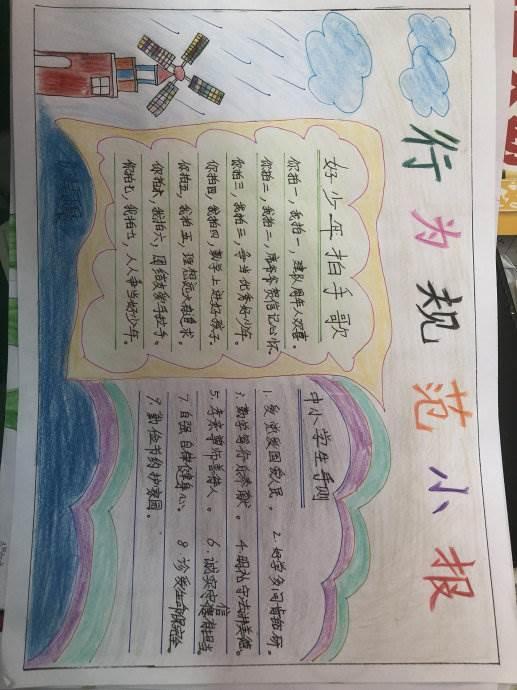 行为规范小报
好少年拍手歌
你拍一，我拍一，建队周年人欢喜。
你拍二，我拍二，席爷爷教信记心怀。
你拍三，我拍三，争当优秀好少年。
你拍四，我拍四，勤学上进好孩子
你拍五，我拍五，理想远大有追求。
你拍六，我拍六，团结友爱手拉手。
你拍九，我拍九，人人争当好少年。
中小学生手则
1. 爱党爱国爱人民。 2. 好学多问肯钻研。
3. 勤劳笃行乐奉献。 4. 明礼守法讲美德。
5. 孝亲尊师善待人。 6. 诚实守信有担当。
7. 自强自律健身心。 8 珍爱生命保安全
9. 勤俭节约护家园。